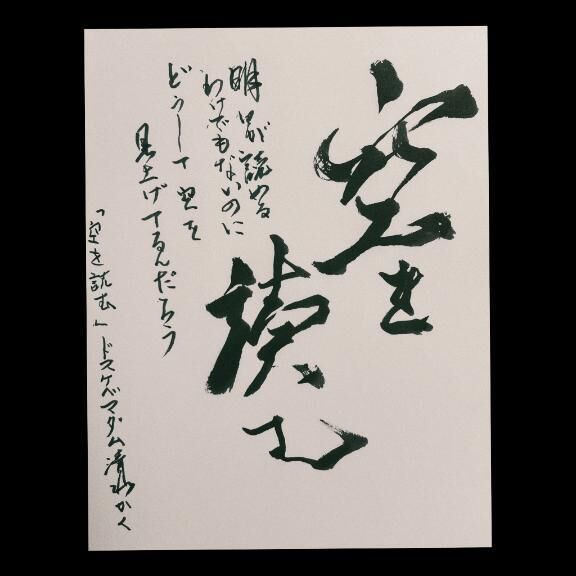 空を
読む
明日が読める
わけでもないのに
どうして空を
見上げてるんだろう
「空を読む」ドスケベマダム清水かく